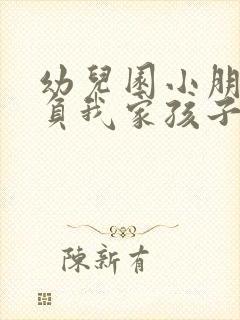 幼兒園小朋
負我家孩子
陳新有